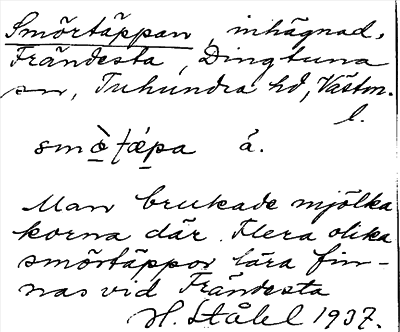 Smörtäppan, inhägnad,
Frändesta, Dingtuna
sn, Tuhundra hd, Västm.
l.
smò̱ṭæ̱pa å.
Man brukade mjölka
korna där. Flera olika
smörtäppor lära fin-
nas vid Frändesta
H. Ståhl 1937.